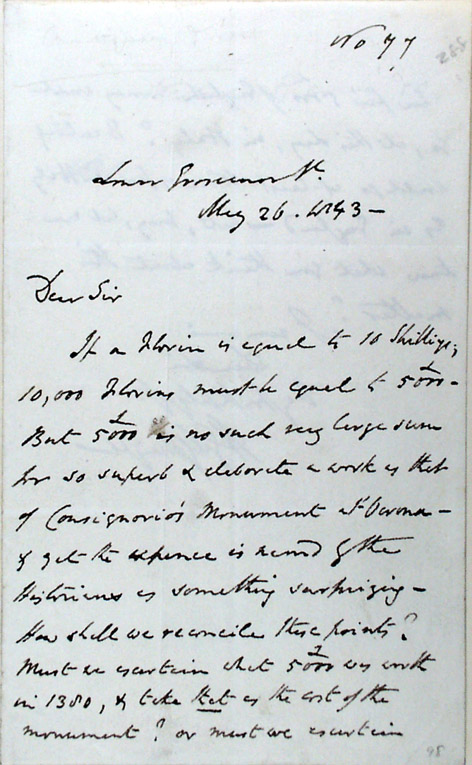 No 77
Lower Grosvenor St.
May 26. 1843 -
Dear Sir
If a Florin is equal to 10 Shillings,
10,000 Florins must be equal to £5000 -
But £5000 is no such very large sum
for so superb & elaborate a work as that
of Consignorio's Monument at Verona -
& yet the expence is named by the
Historians as something surprizing -
How shall we reconcile these points?
Must we ascertain what £5000 was worth
in 1380, & take that as the cost of the
monument? or must we ascertain
98